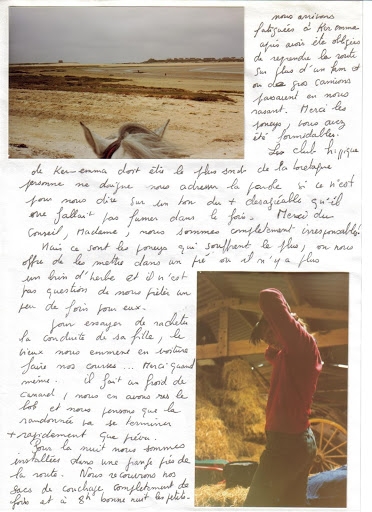 nous arrivons
fatiguées à Keremma
après avoir été obligées
de reprendre la route
sur plus d'un km et
où de gros camions
passaient en nous
rasant. Merci les
poneys, vous avez
été formidables.
Les club hippique
de Ker-emma doit être le plus snob de la bretagne
personne ne daigne nous adresser la parole si ce n'est
pour nous dire sur un ton du + désagréable qu'il
ne fallait pas fumer dans le foin. Merci du
Conseil, Madame, nous sommes complètement irresponsables.
Mais ce sont les poneys qui souffrent le plus, on nous
offre de les mettre dans un pré où il n'y a plus
un brin d'herbe et il n'est
pas question de nous prêter un
peu de foin pour eux.
Pour essayer de racheter
la conduite de sa fille, le
vieux nous emmene en voiture
faire nos courses... Merci quand
même. Il fait un froid de
canard, nous en avons ras le
bob et nous pensons que la
randonnée va se terminer
+ rapidement que prévu.
Pour la nuit nous sommes
installées dans une grange près de
la route. Nous recouvrons nos
sacs de couchage complètement de
foin et à 8h bonne nuit les petits.